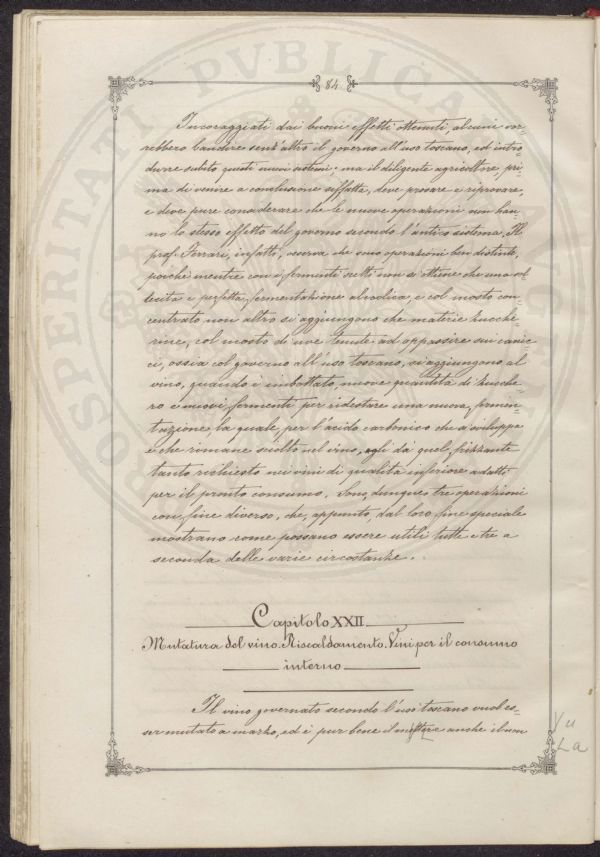 84
Incoraggiati dai buoni effetti ottenuti, alcuni vor-
rebbero bandire senz'altro il governo all'uso toscano, ed intro-
durre subito questi nuovi sistemi; ma il diligente agricoltore, pri-
ma di venire a conclusione siffatta, deve provare e riprovare,
e deve pure considerare che le nuove operazioni non han-
no lo stesso effetto del governo secondo l'antico sistema. Il
prof. Ferrari, infatti, osserva che sono operazioni ben distinte,
poiché mentre con i fermenti scelti non si ottiene che una sol-
lecita e perfetta fermentazione alcoolica, e col mosto con-
centrato non altro si aggiungono che materie zucche-
rine, col mosto di uve tenute ad appassire sui canic-
ci, ossia col governo all'uso toscano, si aggiungono al
vino, quando è imbottato, nuove quantità di zucche-
ro e nuovi fermenti per ridestare una nuova fermen-
tazione la quale, per l'acido carbonico che si sviluppa
e che rimane sciolto nel vino, egli dà quel frizzante
tanto richiesto nei vini di qualità inferiore adatti
per il pronto consumo. Sono, dunque, tre operazioni
con fine diverso, che, appunto, dal loro fine speciale
mostrano come possano essere utili tutte e tre a
seconda delle varie circostanze.
Capitolo XXII
Mutatura del vino. Riscaldamento. Vini per il consumo
interno
Il vino governato secondo l'uso toscano vuol es-
ser mutato a marzo, ed è pur bene il mutare anche il buon
PROSPERITATI PVBLICAE AVGENDAE